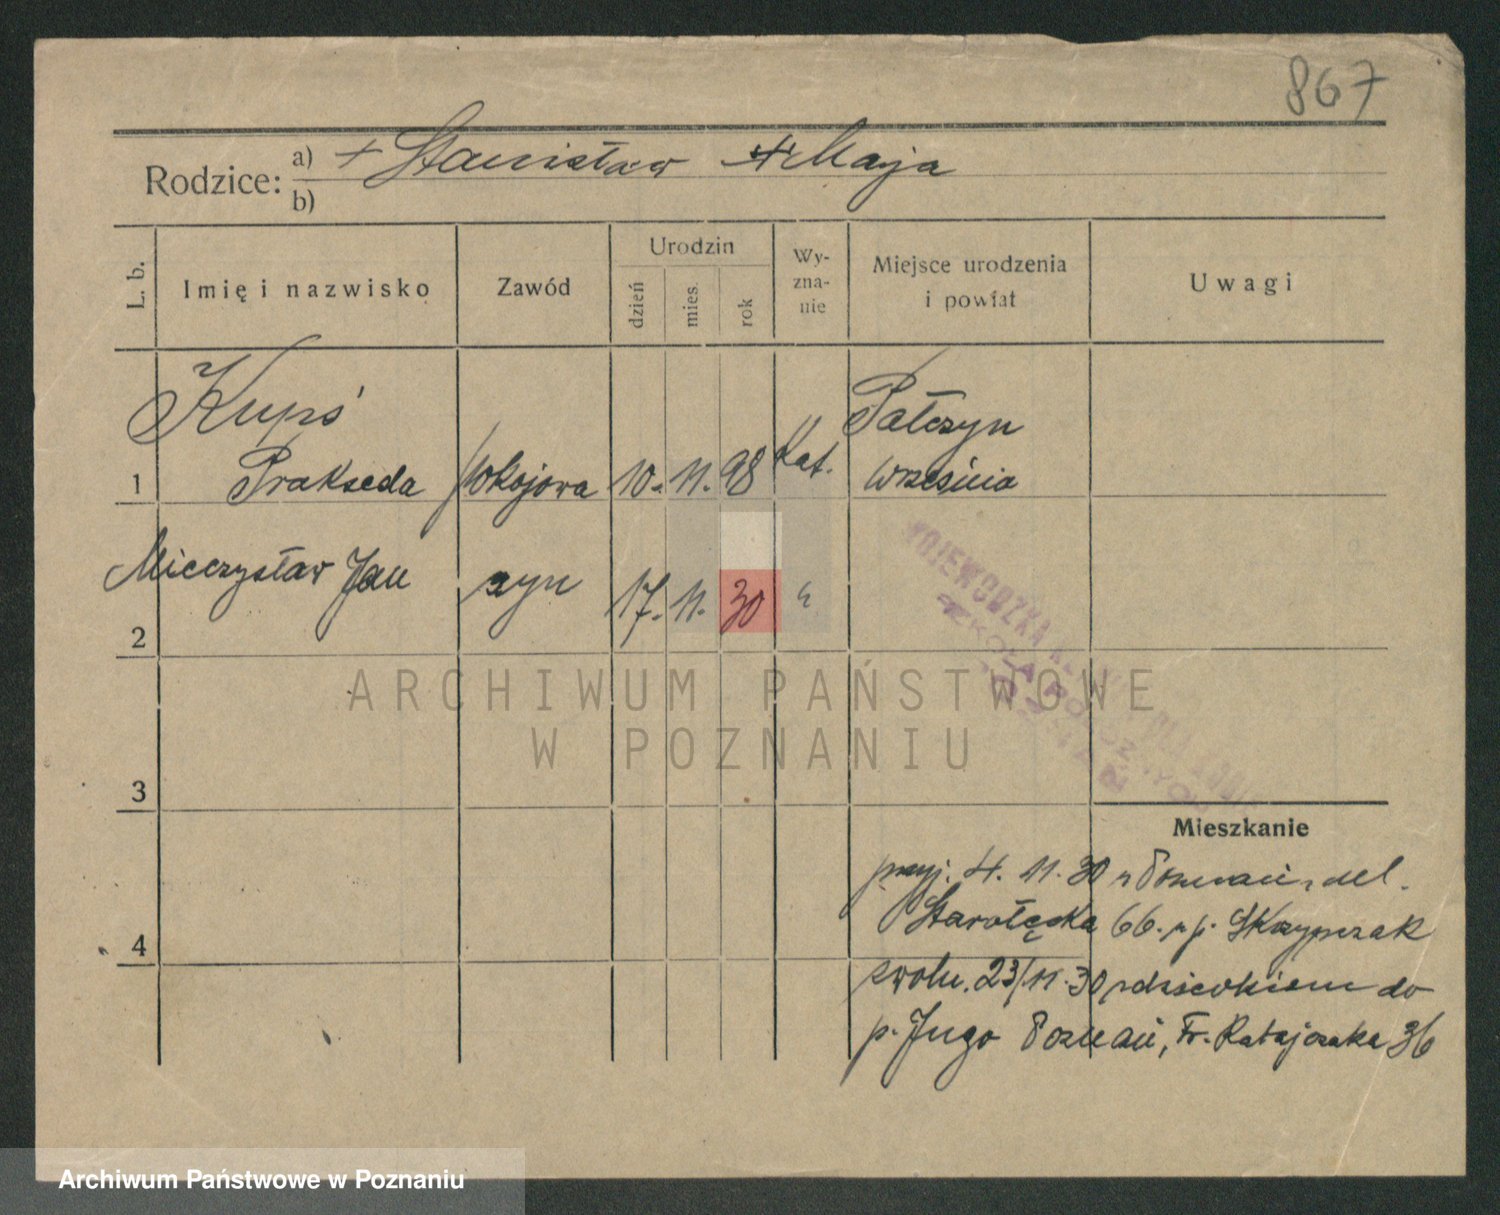 867
Rodzice: a) + Stanisław + Maja
b)
L. b. Imię i nazwisko Zawód Urodzin dzień mies. rok Wy-zna-nie Miejsce urodzenia i powiat Uwagi
Kupś Pałczyn
1 Prakseda pokojowa 10. 11. 98 Kat. Września
Mieczysław Jan syn 17. 11. 30 "
2
WOJEWÓDZKA
SZKOŁA POŁOŻNYCH
ARCHIWUM PAŃSTWOWE
W POZNANIU
3
Mieszkanie
przyj. 4. 11. 30 z Poznań, ul.
Starołęcka 66. u p. Skrzypczak
4
zwoln. 23/11. 30 z dzieckiem do
p. Jugo Poznań, Fr. Ratajczaka 36
Archiwum Państwowe w Poznaniu